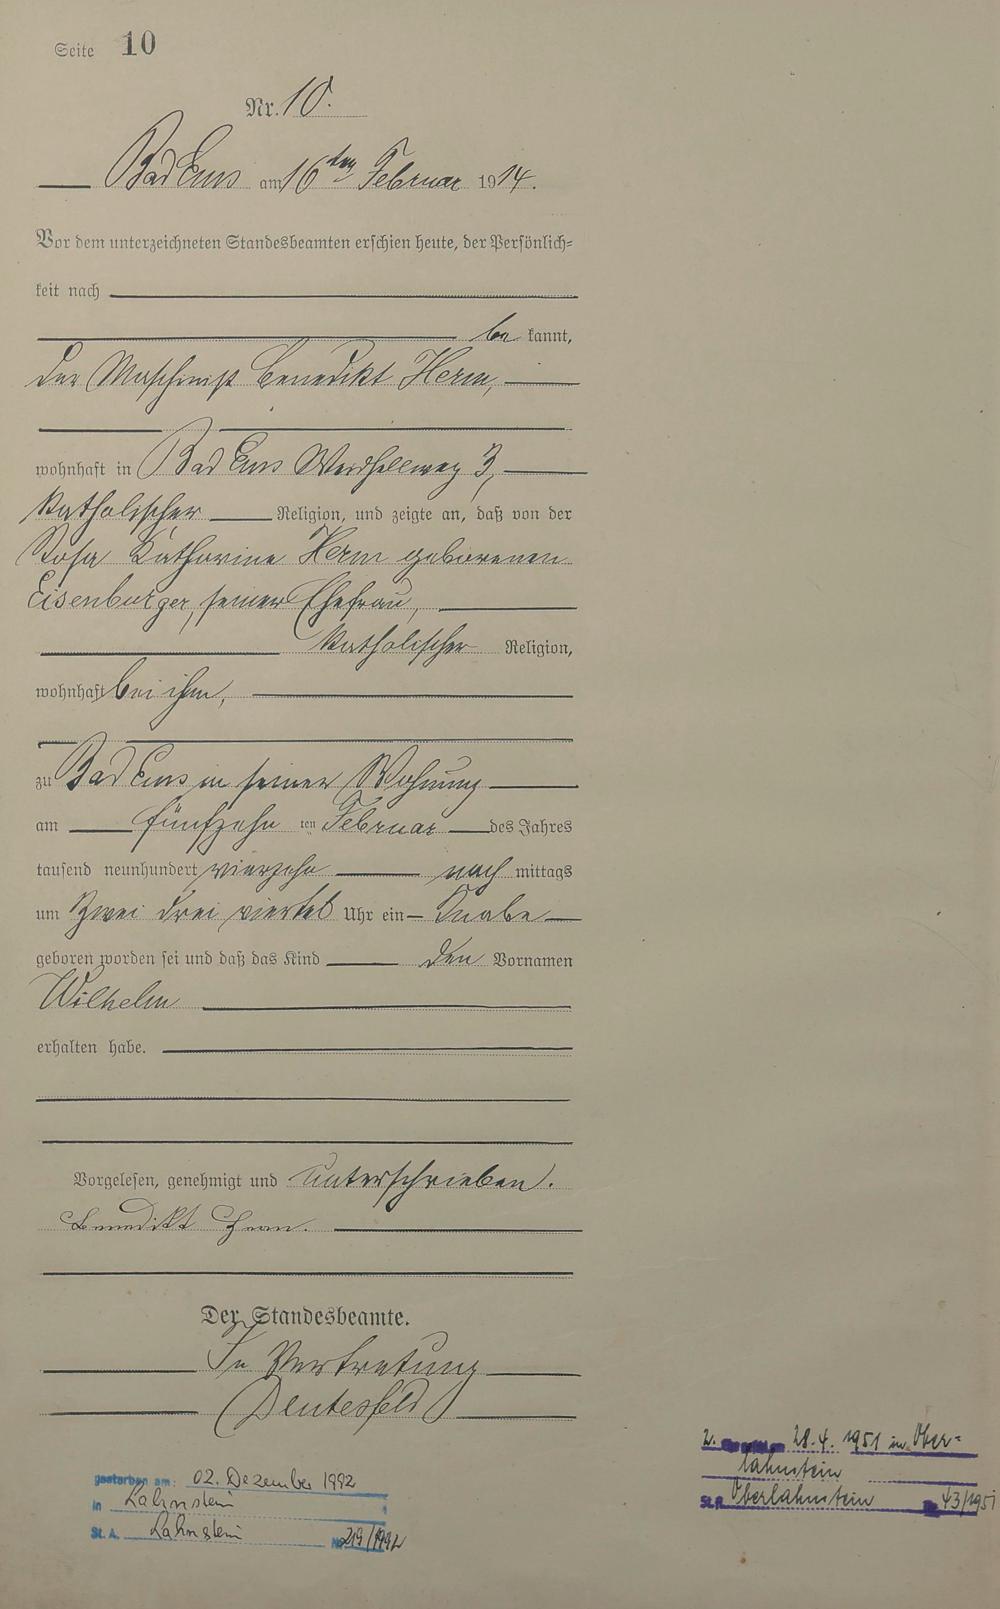 Seite 10
Nr. 10.
Bad Ems am 16ten Februar 1914.
Vor dem unterzeichneten Standesbeamten erschien heute, der Persönlich=
keit nach
be kannt,
der Maschinist Benedikt Herm,
wohnhaft in Bad Ems 3,
katholischer Religion, und zeigte an, daß von der
Rosa Katharine Herm geborenen
Eisenburger, seiner Ehefrau,
katholischer Religion,
wohnhaft bei ihm,
zu Bad Ems in seiner Wohnung
am fünfzehn ten Februar des Jahres
tausend neunhundert vierzehn nach mittags
um zwei drei viertel Uhr ein Knabe
geboren worden sei und daß das Kind den Vornamen
Wilhelm
erhalten habe.
Vorgelesen, genehmigt und unterschrieben.
Benedikt Herm.
Der Standesbeamte.
In Vertretung
2. 28.4.1951 in Ober=
lahnstein
St.A. Oberlahnstein Nr. 43/1951
gestorben am: 02. Dezember 1992
in Lahnstein
St. A. Lahnstein Nr. 219/1992